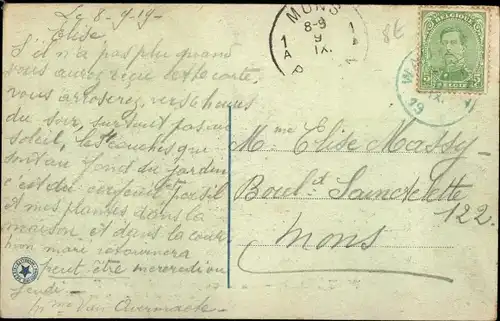 Le 8-9-19-
Elise.
S'il n'a pas plu quand
vous aurez reçu cette carte,
vous arroserez, vers 6 heures
du soir, surtout pas au
soleil, les couches qui
sont au fond du jardin
c'est du cerfeuil et persil
et mes plantes dans la
maison et dans la cour
mon mari retournera
peut être mercredi ou
jeudi -
Mme Van Overmaete
MONS
8-9
9
IX
1
A
8t
BELGIQUE
5 5
BELGIË
IX.
19
Mme Elise Massy
Boul.d Sainctelette
122.
Mons